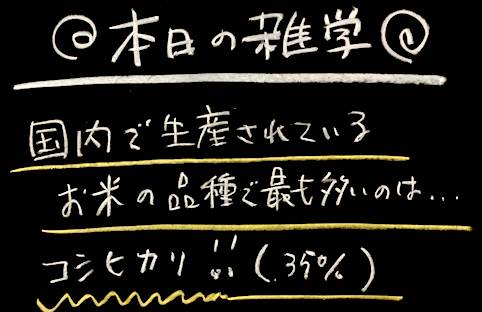 @本日の雑学@
国内で生産されている
お米の品種で最も多いのは...
コシヒカリ!!(35%)